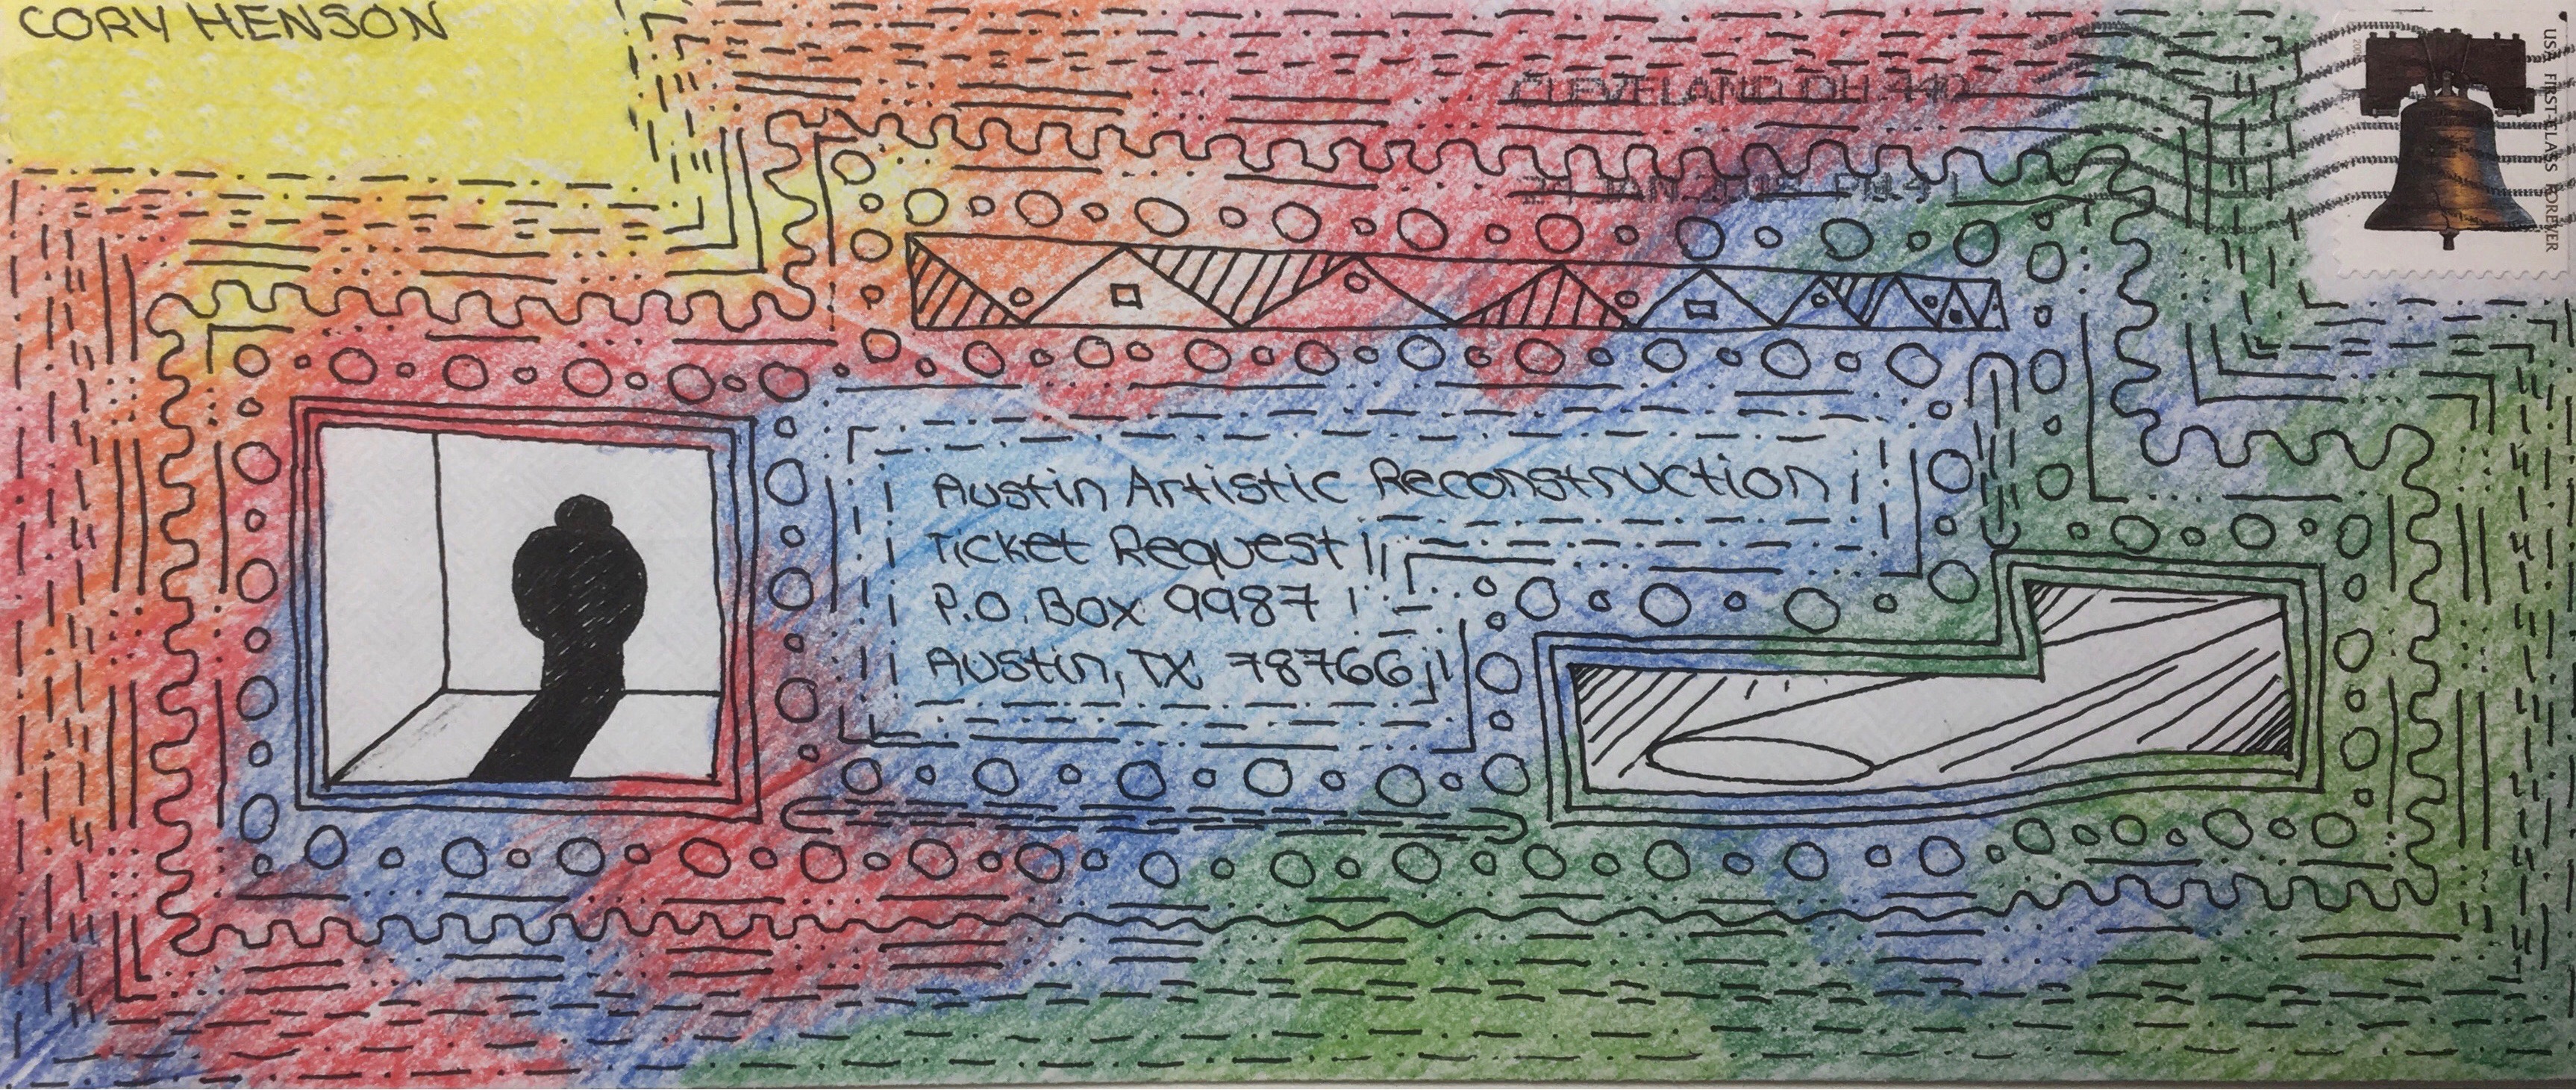 CORY HENSON
CLEVELAND OH 440
USA FIRST-CLASS FOREVER
Austin Artistic Reconstruction
Ticket Request
P.O. Box 9987
Austin, TX 78766